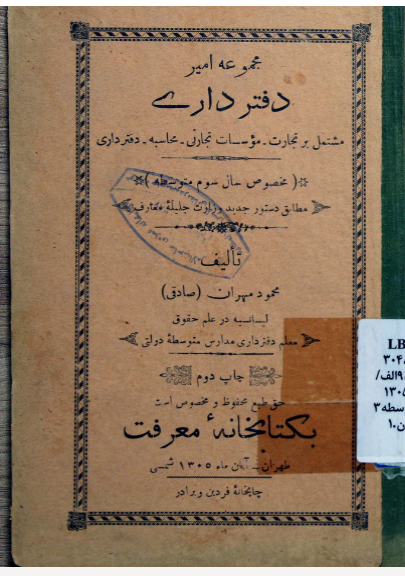 مجموعه امیر
دفتر داری
مشتمل بر تجارت - مؤسسات تجارتی - محاسبه - دفترداری
(مخصوص سال سوم متوسطه)
مطابق دستور جدید وزارت جلیلهٔ معارف
تألیف
محمود مهران (صادقی)
لیسانسیه در علم حقوق
معلم دفترداری مدارس متوسطهٔ دولتی
چاپ دوم
حق طبع محفوظ و مخصوص است
بکتابخانهٔ معرفت
طهران - آبان ماه ۱۳۰۵ شمسی
چاپخانهٔ فردین و برادر
LB
۳۰۴
۹الف/
۱۳۰۵
سطه۳
ن.۱